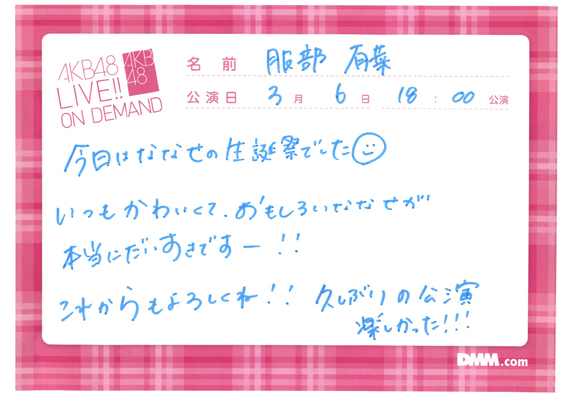 AKB48
LIVE!!
ON DEMAND
AKB
48
名前 服部 有菜
公演日 3月 6日 18:00公演
今日はななせの生誕祭でした
いつもかわいくて、おもしろいななせが
本当にだいすきですー!!
これからもよろしくね!! 久しぶりの公演
楽しかった!!!
DMM.com